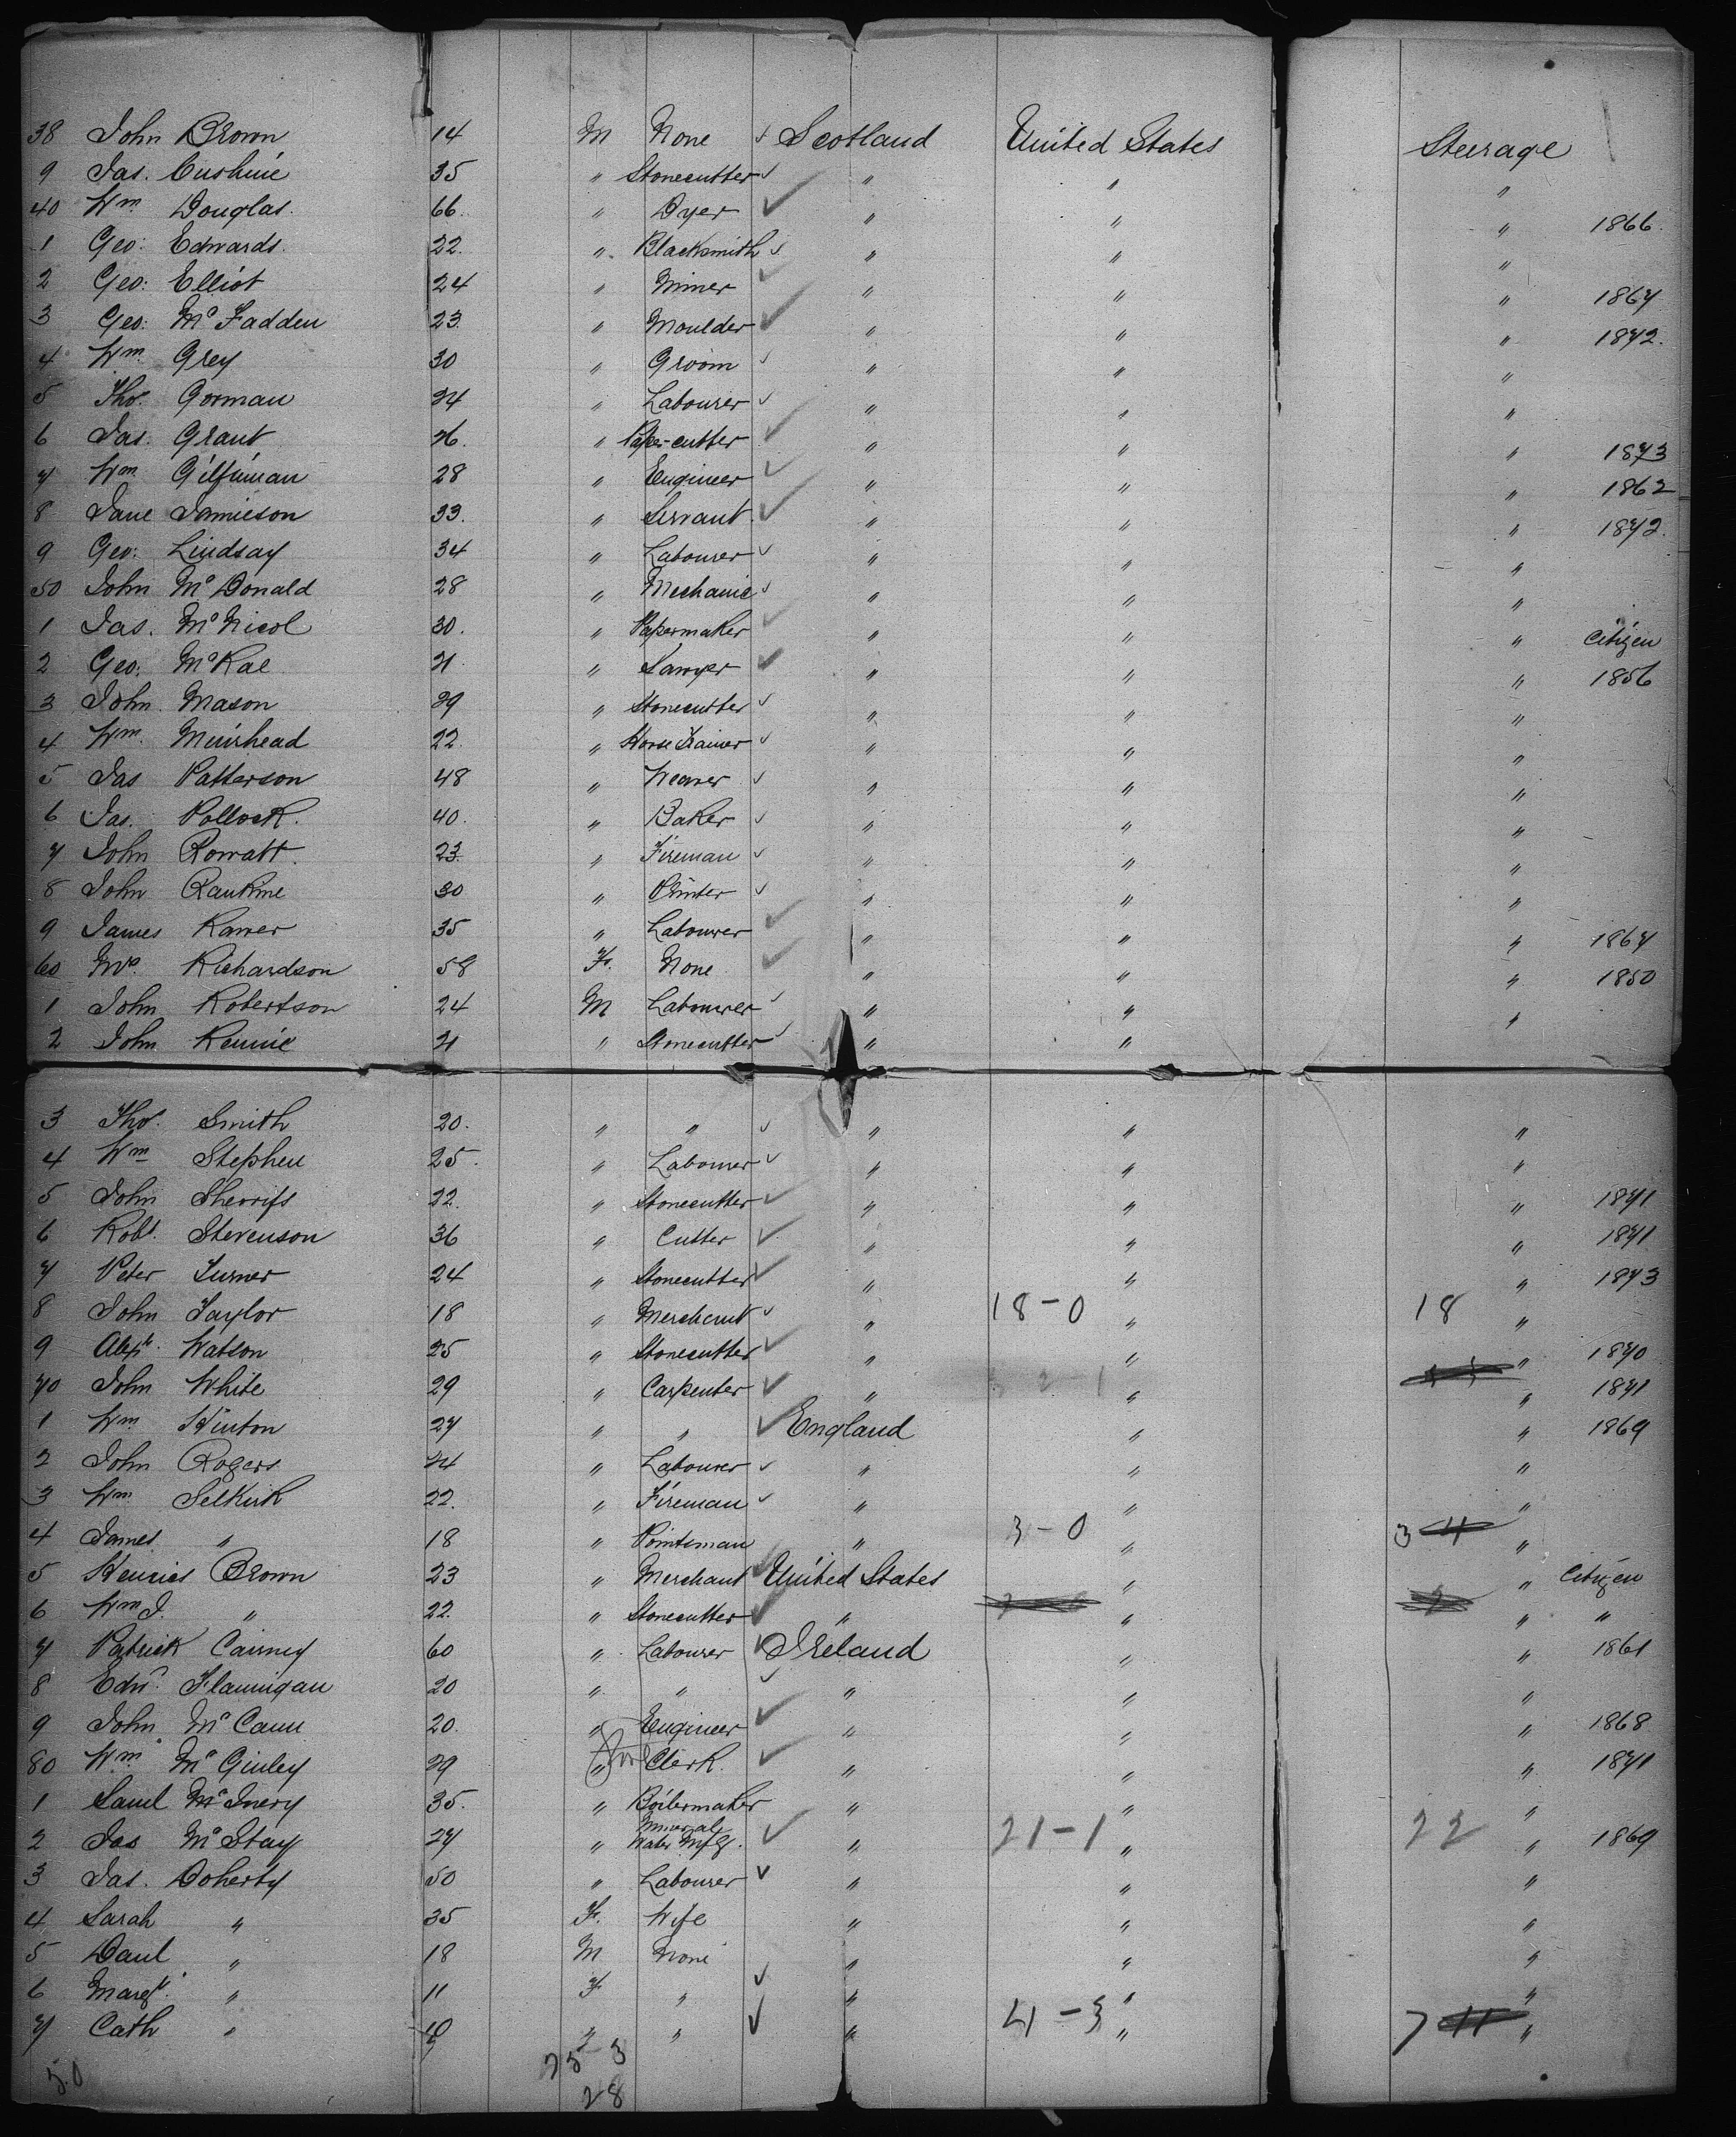 38 John Brown 14 M None Scotland United States Steerage
9 Jas. Cushnie 35 " Stonecutter " " "
40 Wm Douglas. 66. " Dyer " " " 1866.
1 Geo: Edwards. 22. " Blacksmith " " "
2 Geo: Elliot 24 " Miner " " " 1867
3 Geo: McFadden 23. " Moulder " " " 1872.
4 Wm. Grey 30 " Groom " " "
5 Thos. Gorman 24 " Labourer " " "
6 Jas. Grant 26. " Paper-cutter " " " 1873
7 Wm Gilfinnan 28 " Engineer " " " 1862
8 Jane Jamieson 33. " Servant. " " " 1872.
9 Geo: Lindsay 34 " Labourer " " "
50 John McDonald 28 " Mechanic " " "
1 Jas. McNicol 30. " Papermaker " " " Citizen
2 Geo: McRae 21. " Sawyer " " " 1856
3 John Mason 29 " Stonecutter " " "
4 Wm. Muirhead 22. " Horse Trainer " " "
5 Jas Patterson 48 " Weaver " " "
6 Jas. Pollock. 40. " Baker " " "
7 John Rowatt. 23. " Fireman " " "
8 John Rankine 30 " Printer " " "
9 James 35 " Labourer " " " 1867
60 Mrs. Richardson 58 F. None " " " 1850
1 John Robertson 24 M Labourer " " "
2 John Rennie 21 " Stonecutter " "
3 Thos. Smith 20. " " " " "
4 Wm Stephen 25. " Labourer " " "
5 John Sherrifs 22. " Stonecutter " " " 1871
6 Robt. Stevenson 36 " Cutter " " " 1871
7 Peter Turner 24 " Stonecutter " " " 1873
8 John Taylor 18 " Merchant " 18-0 " 18 "
9 Alexr. Watson 25 " Stonecutter " " " 1870
70 John White 29 " Carpenter " " " 1871
1 Wm Hinton 27 " " England " " 1869
2 John Rogers 24 " Labourer " " "
3 Wm. Selkirk 22. " Fireman " " "
4 James " 18 " Pointsman " 3-0 " 3 "
5 Brown 23 " Merchant United States " " Citizen
6 Wm J. " 22. " Stonecutter " " " "
7 Patrick Cairney 60 " Labourer Ireland " " 1861
8 Edwd. Flannigan 20 " " " " "
9 John McCann 20. " Engineer " " " 1868
80 Wm McGinley 29 " Clerk. " " " 1871
1 Saml McInery 35. " Boilermaker " " "
2 Jas McStay 27 " Mineral Water Mfg. " 21-1 " 22 " 1869
3 Jas. Doherty 50 " Labourer " " "
4 Sarah " 35 F. Wife " " "
5 Danl " 18 M None " " "
6 Margt. " 11 F " " " "
7 Cath " 10 " " " 4-3 " 7 "
50 25 3
28